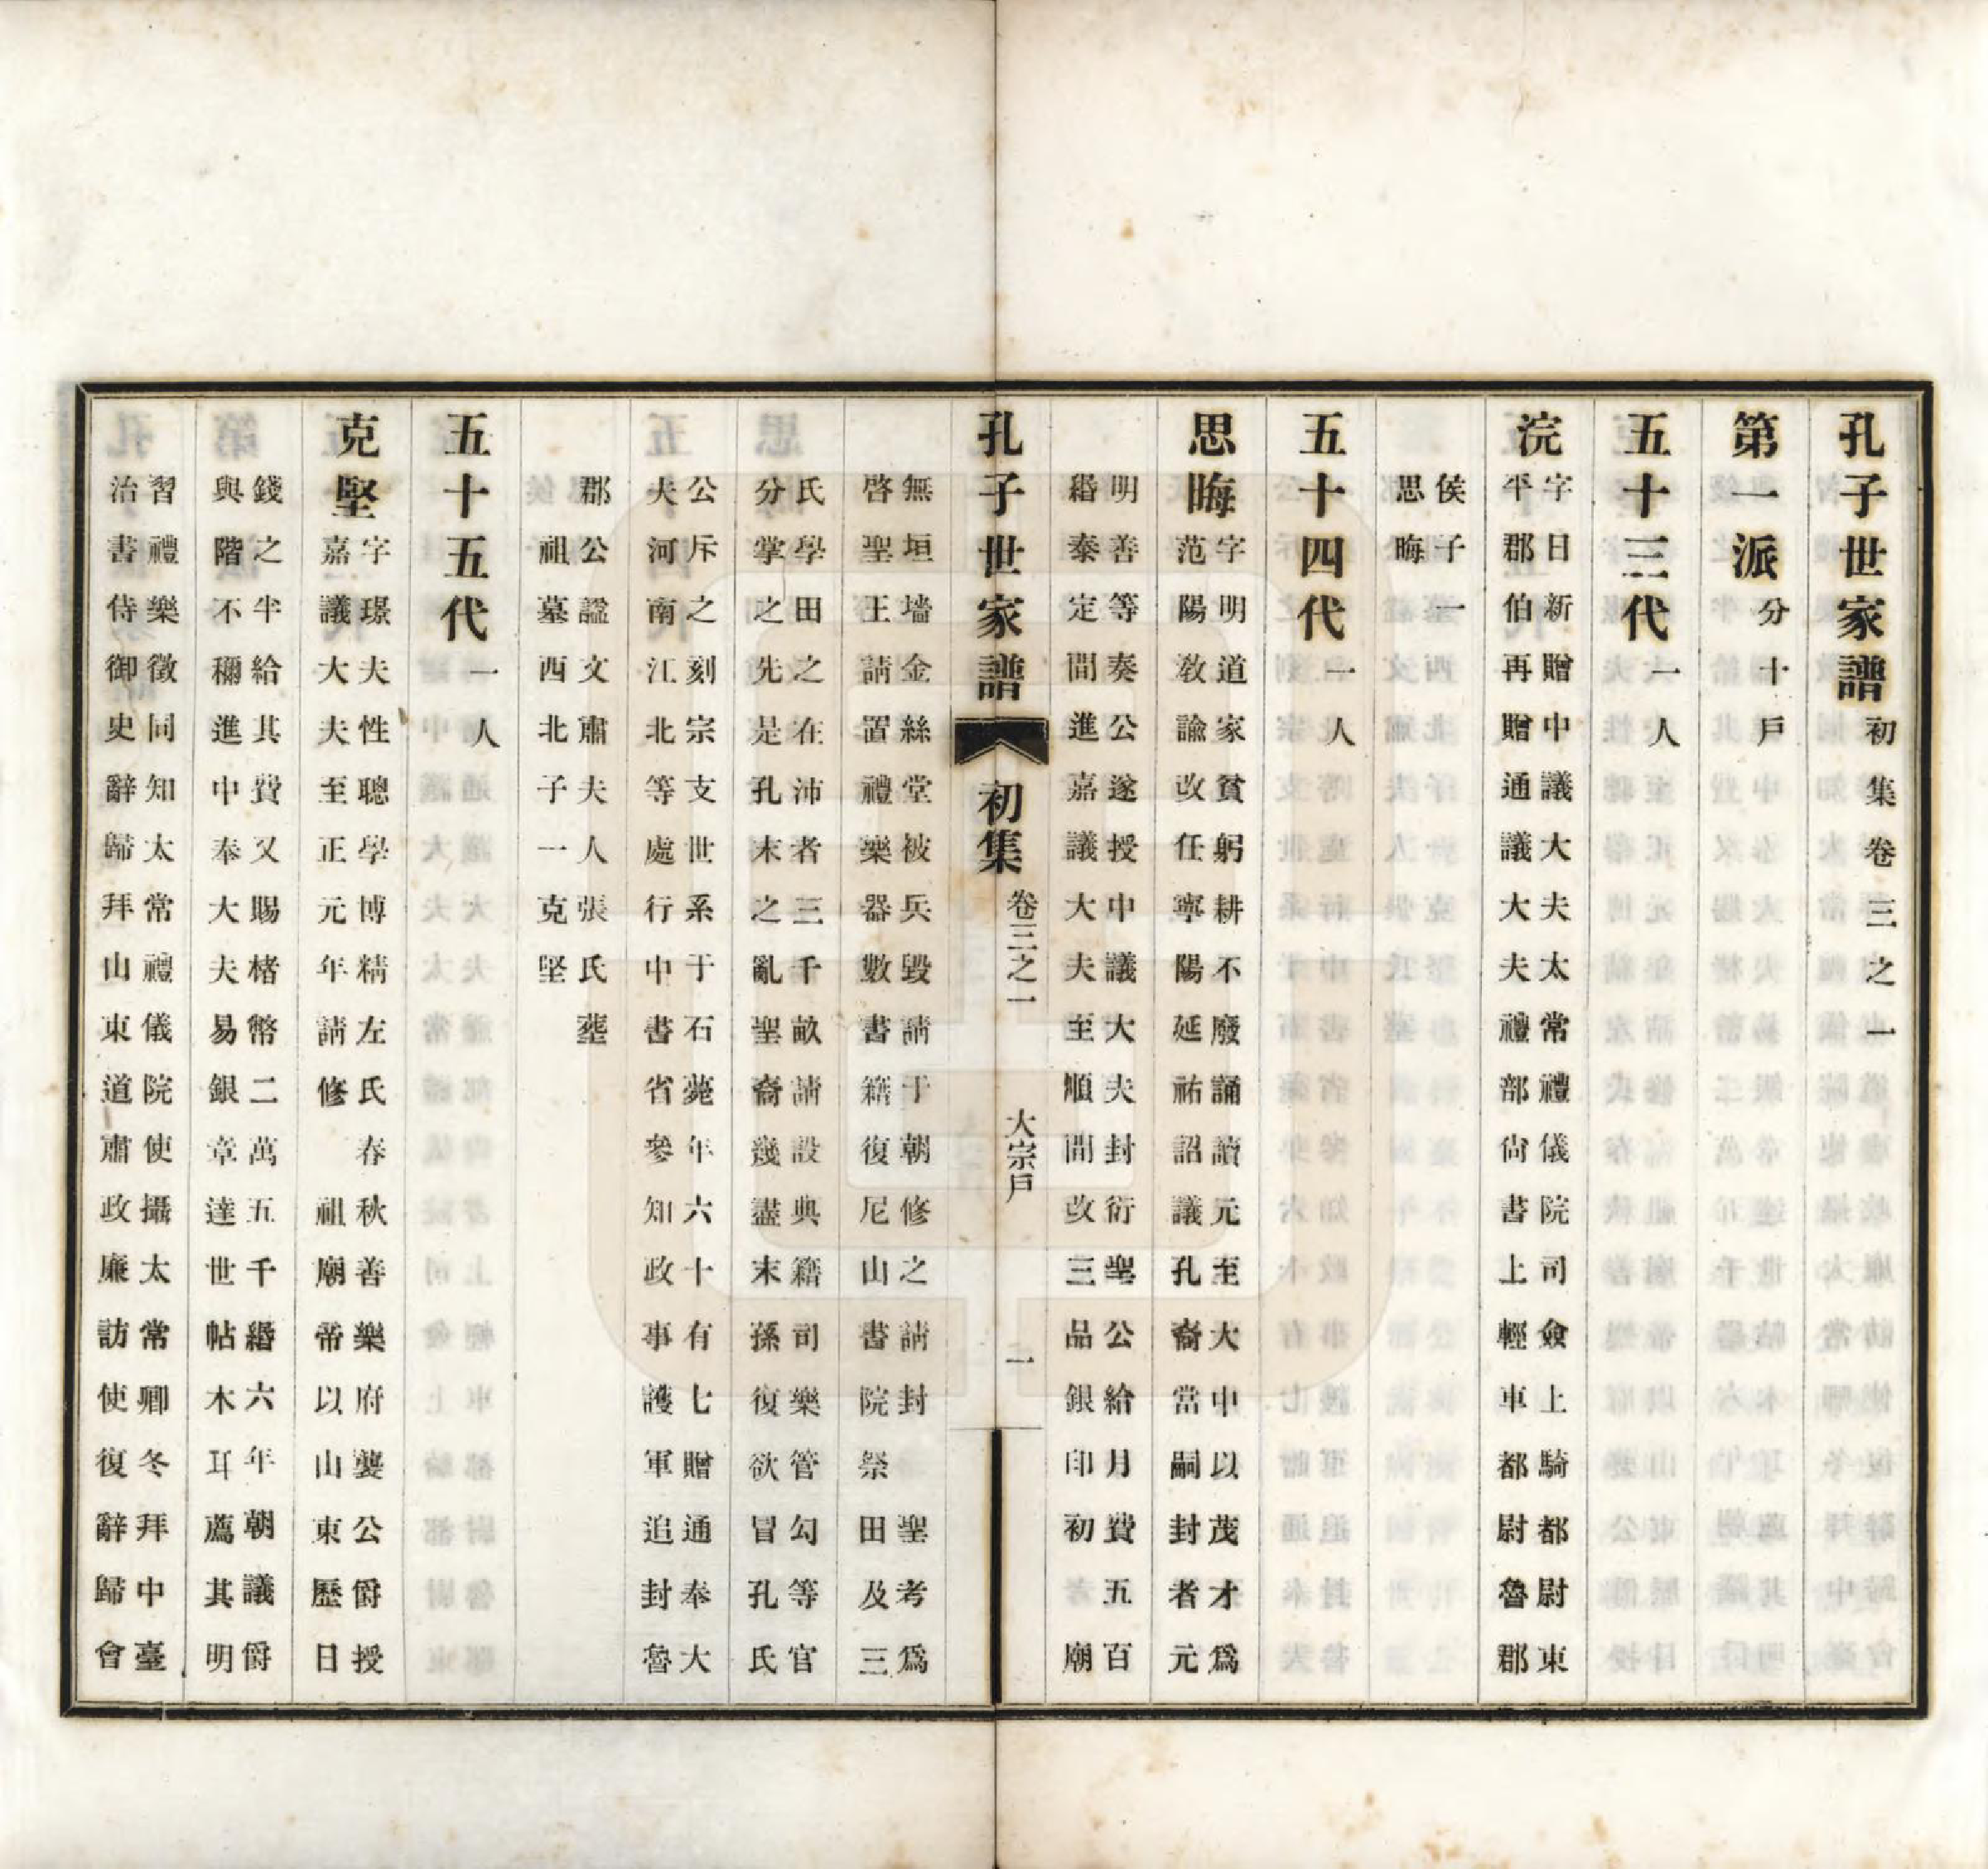 孔子世家譜初集卷三之一
第一派分十戶
五十三代一人
浣字日新贈中議大夫太常禮儀院司僉上騎都尉東
平郡伯再贈通議大夫禮部尙書上輕車都尉魯郡
侯子一
思晦
五十四代一人
思晦字明道家貧躬耕不廢誦讀元至大中以茂才爲
范陽敎諭改任寧陽延祐詔議孔裔當嗣封者元
明善等奏公遂授中議大夫封衍聖公給月費五百
緡泰定間進嘉議大夫至順間改三品銀印初廟
孔子世家譜 初集 卷三之一 大宗戶 一
無垣墻金絲堂被兵毀請于朝修之請封聖考爲
啓聖王請置禮樂器數書籍復尼山書院祭田及三
氏學田之在沛者三千畝請設典籍司樂管勾等官
分掌之先是孔末之亂聖裔幾盡末孫復欲冒孔氏
公斥之刻宗支世系于石薨年六十有七贈通奉大
夫河南江北等處行中書省參知政事護軍追封魯
郡公諡文肅夫人張氏葬
祖墓西北子一克堅
五十五代一人
克堅字璟夫性聰學博精左氏春秋善樂府襲公爵授
嘉議大夫至正元年請修祖廟帝以山東歷日
錢之半給其費又賜楮幣二萬五千緡六年朝議爵
與階不稱進中奉大夫易銀章達世帖木耳薦其明
習禮樂徵同知太常禮儀院使攝太常卿冬拜中臺
治書侍御史辭歸拜山東道肅政廉訪使復辭歸會